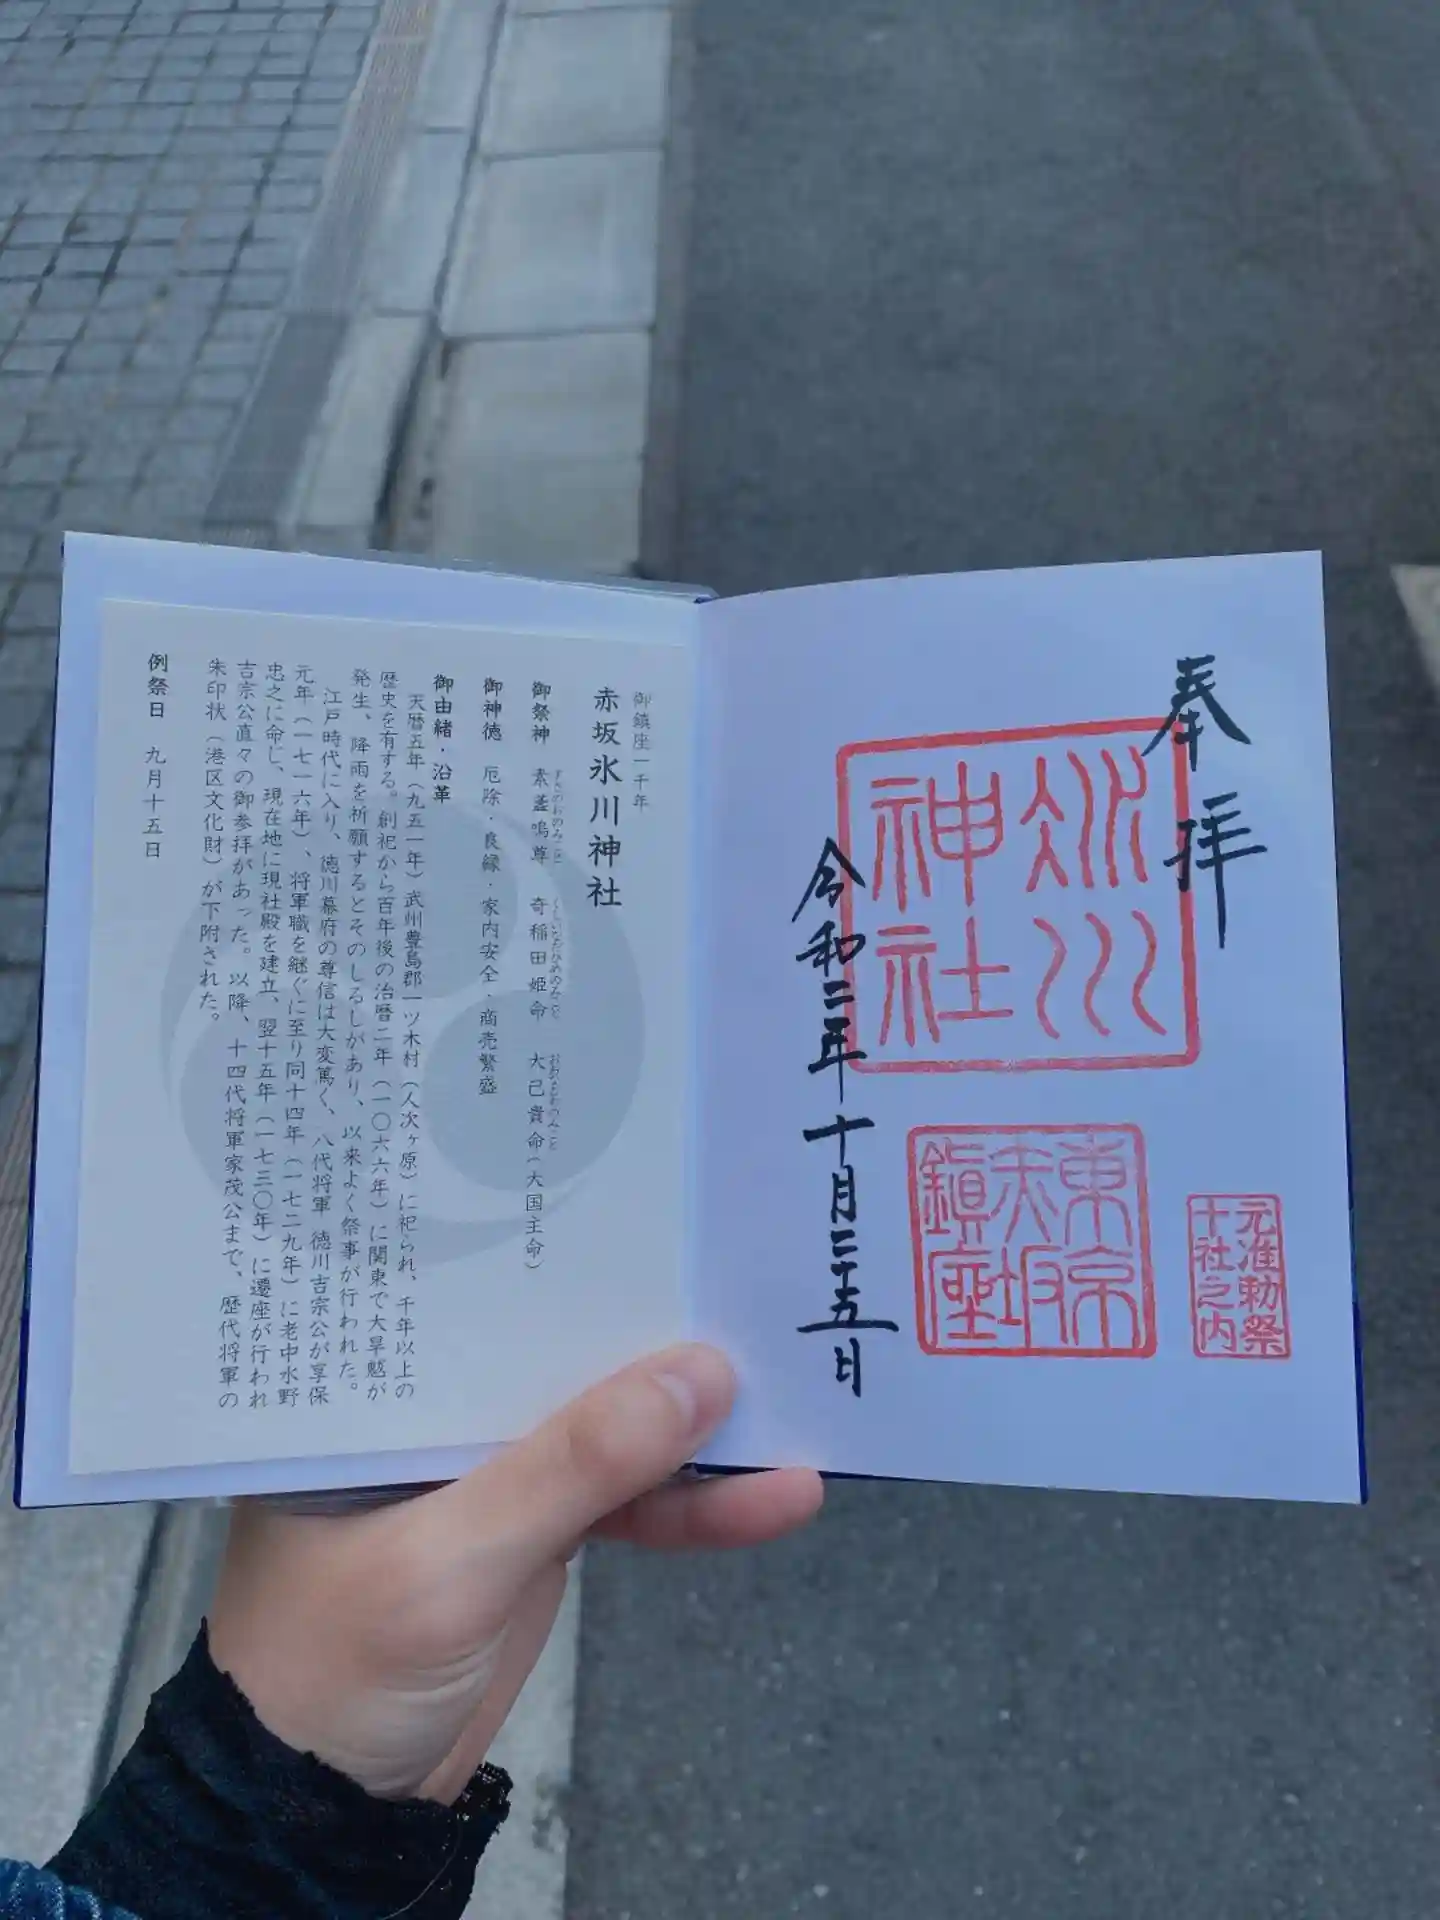 奉拝
氷川神社
元准勅祭十社之内
東京赤坂鎮座
令和二年十月二十五日
御鎮座一千年
赤坂氷川神社
御祭神 素盞嗚尊 奇稲田姫命 大己貴命(大国主命)
すさのおのみこと くしいなだひめのみこと おおなむぢのみこと
御神徳 厄除・良縁・家内安全・商売繁盛
御由緒・沿革
天暦五年(九五一年)武州豊島郡一ツ木村(人次ヶ原)に祀られ、千年以上の
歴史を有する。創祀から百年後の治暦二年(一〇六六年)に関東で大旱魃が
発生、降雨を祈願するとそのしるしがあり、以来よく祭事が行われた。
江戸時代に入り、徳川幕府の尊信は大変篤く、八代将軍 徳川吉宗公が享保
元年(一七一六年)、将軍職を継ぐに至り同十四年(一七二九年)に老中水野
忠之に命じ、現在地に現社殿を建立、翌十五年(一七三〇年)に遷座が行われ
吉宗公直々の御参拝があった。以降、十四代将軍家茂公まで、歴代将軍の
朱印状(港区文化財)が下附された。
例祭日 九月十五日